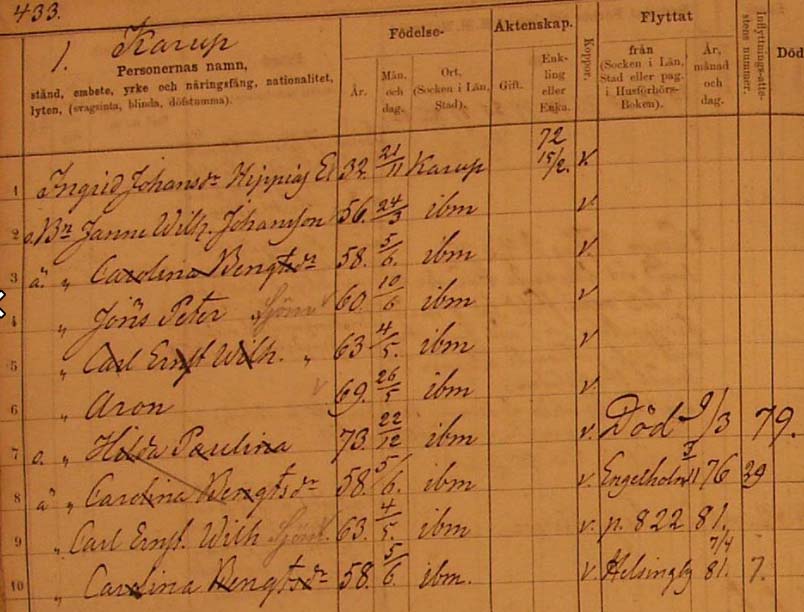 433.
1. Karup
Personernas namn,
stånd, embete, yrke och näringsfång, nationalitet,
lyten, (svagsinta, blinda, döfstumma).
Födelse-
År.
Mån. och dag.
Ort, (Socken i Län, Stad).
Aktenskap.
Gift.
Enk-ling eller Enka.
Koppor.
Flyttat
från (Socken i Län, Stad eller pag. i Husförhörs-Boken).
År, månad och dag.
Inflyttnings-atte-stens nummer.
Död
1 Ingrid Johansdr 32. 21/11 Karup 72 15/2. v.
2 Bn Janne Wilh. Johansson 56. 24/3 ibm v.
3 " Carolina Bengtsdr 58. 5/6. ibm v.
4 " Jöns Peter 60. 10/6 ibm v
5 " Carl Ernst Wilh. " 63 4/5. ibm v
6 " Aron 69. 26/5 ibm v
7 " Hilda Paulina 73. 22/12 ibm v. Död 9/3 79.
8 " Carolina Bengtsdr 58. 5/6. ibm v. Engelholm 76 29
9 " Carl Ernst. Wilh 63. 4/5. ibm v. p. 822 81.
10 " Carolina Bengtsdr 58. 5/6. ibm. v. Helsingby 7/4 81. 7.